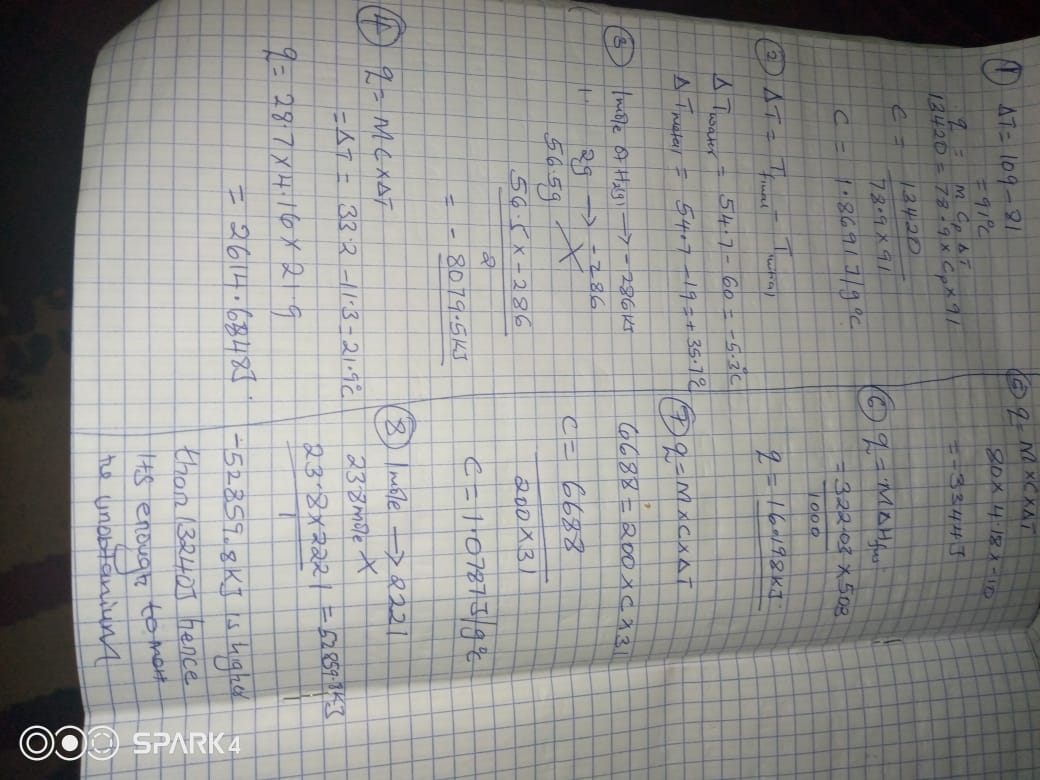 ① ΔT = 109 - 21
= 91°C
q = m Cp ΔT
13420 = 78.9 × Cp × 91
C = 13420
78.9 × 91
C = 1.8691 J/g°C
② ΔT = Tfinal - Tinitial
ΔTwater = 54.7 - 60 = -5.3°C
ΔTmetal = 54.7 - 19 = +35.7°C
③ 1mole → -286kJ
2g → -286
56.5g X
56.5 × -286
2
= - 8079.5kJ
④ q = MC×ΔT
= ΔT = 33.2 - 11.3 = 21.9°C
q = 287 × 4.16 × 21.9
= 2614.6848J.
⑤ q = M×C×ΔT
80 × 4.18 × -10
= -3344J
⑥ q = MΔHfus
= 32203 × 502
1000
q = 16198kJ.
⑦ q = M×C×ΔT
6688 = 200 × C × 31
C = 6688
200 × 31
C = 1.0787J/g°C
⑧ 1mole → 2221
23.8mole X
23.8 × 2221 = 52859.8kJ
1
-52859.8KJ is higher
than 13240J hence
its enough to melt
the